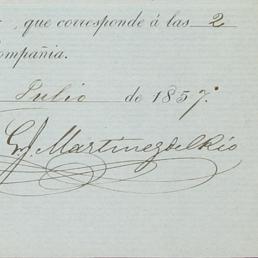 , que corresponde á las 2
ompañia.
Julio de 1857.
G. J. Martinez del Rio